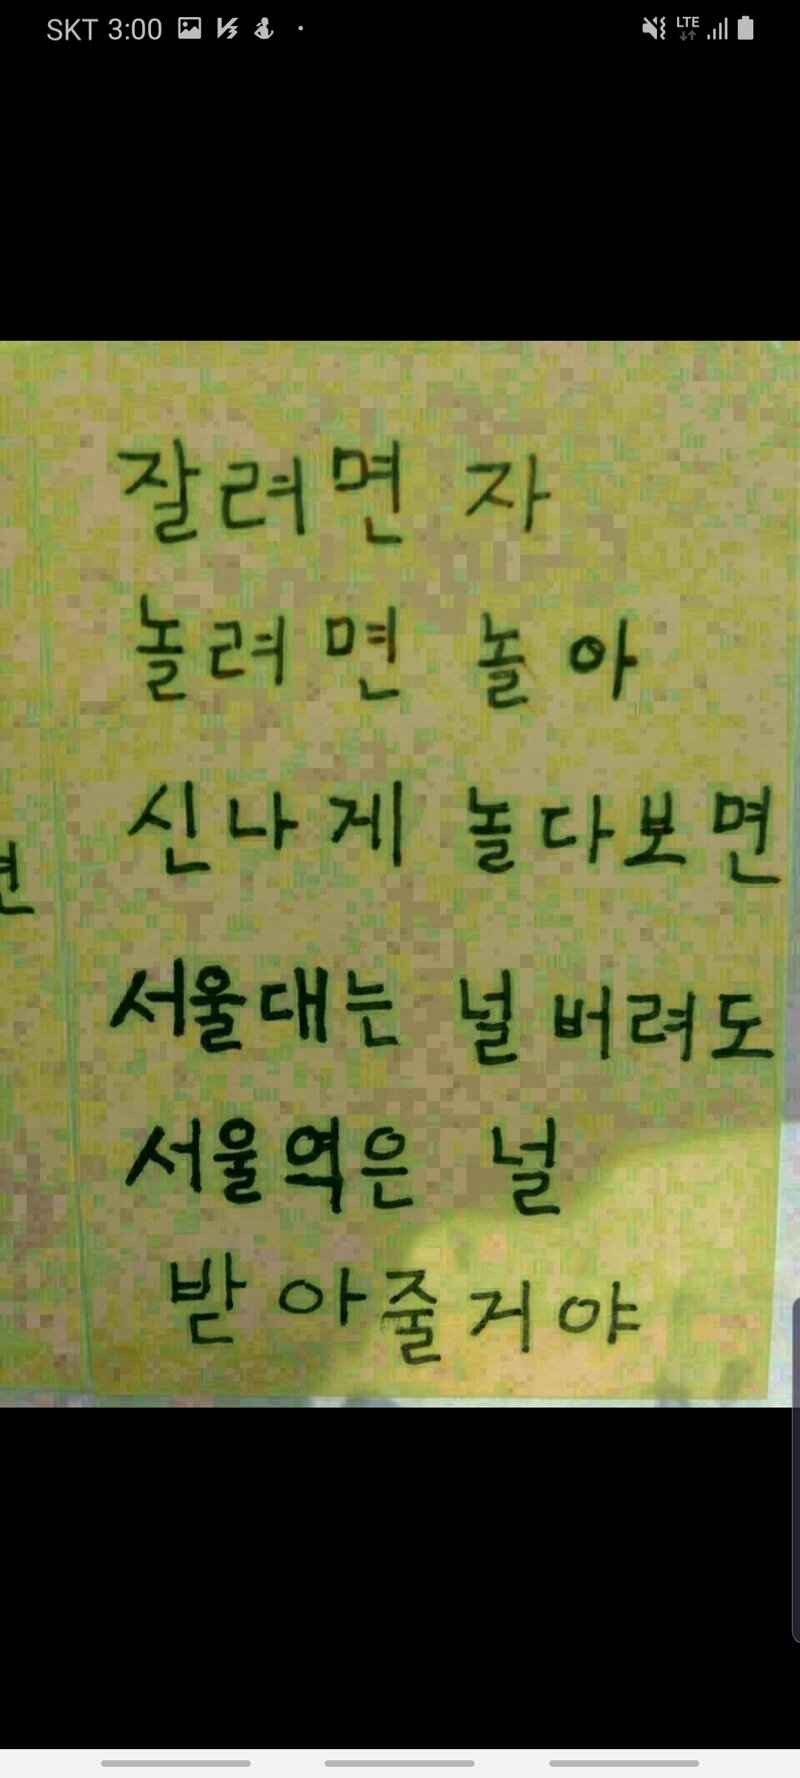 SKT 3:00
LTE
잘려면 자
놀려면 놀아
신나게 놀다보면
서울대는 널 버려도
서울역은 널
받아줄거야